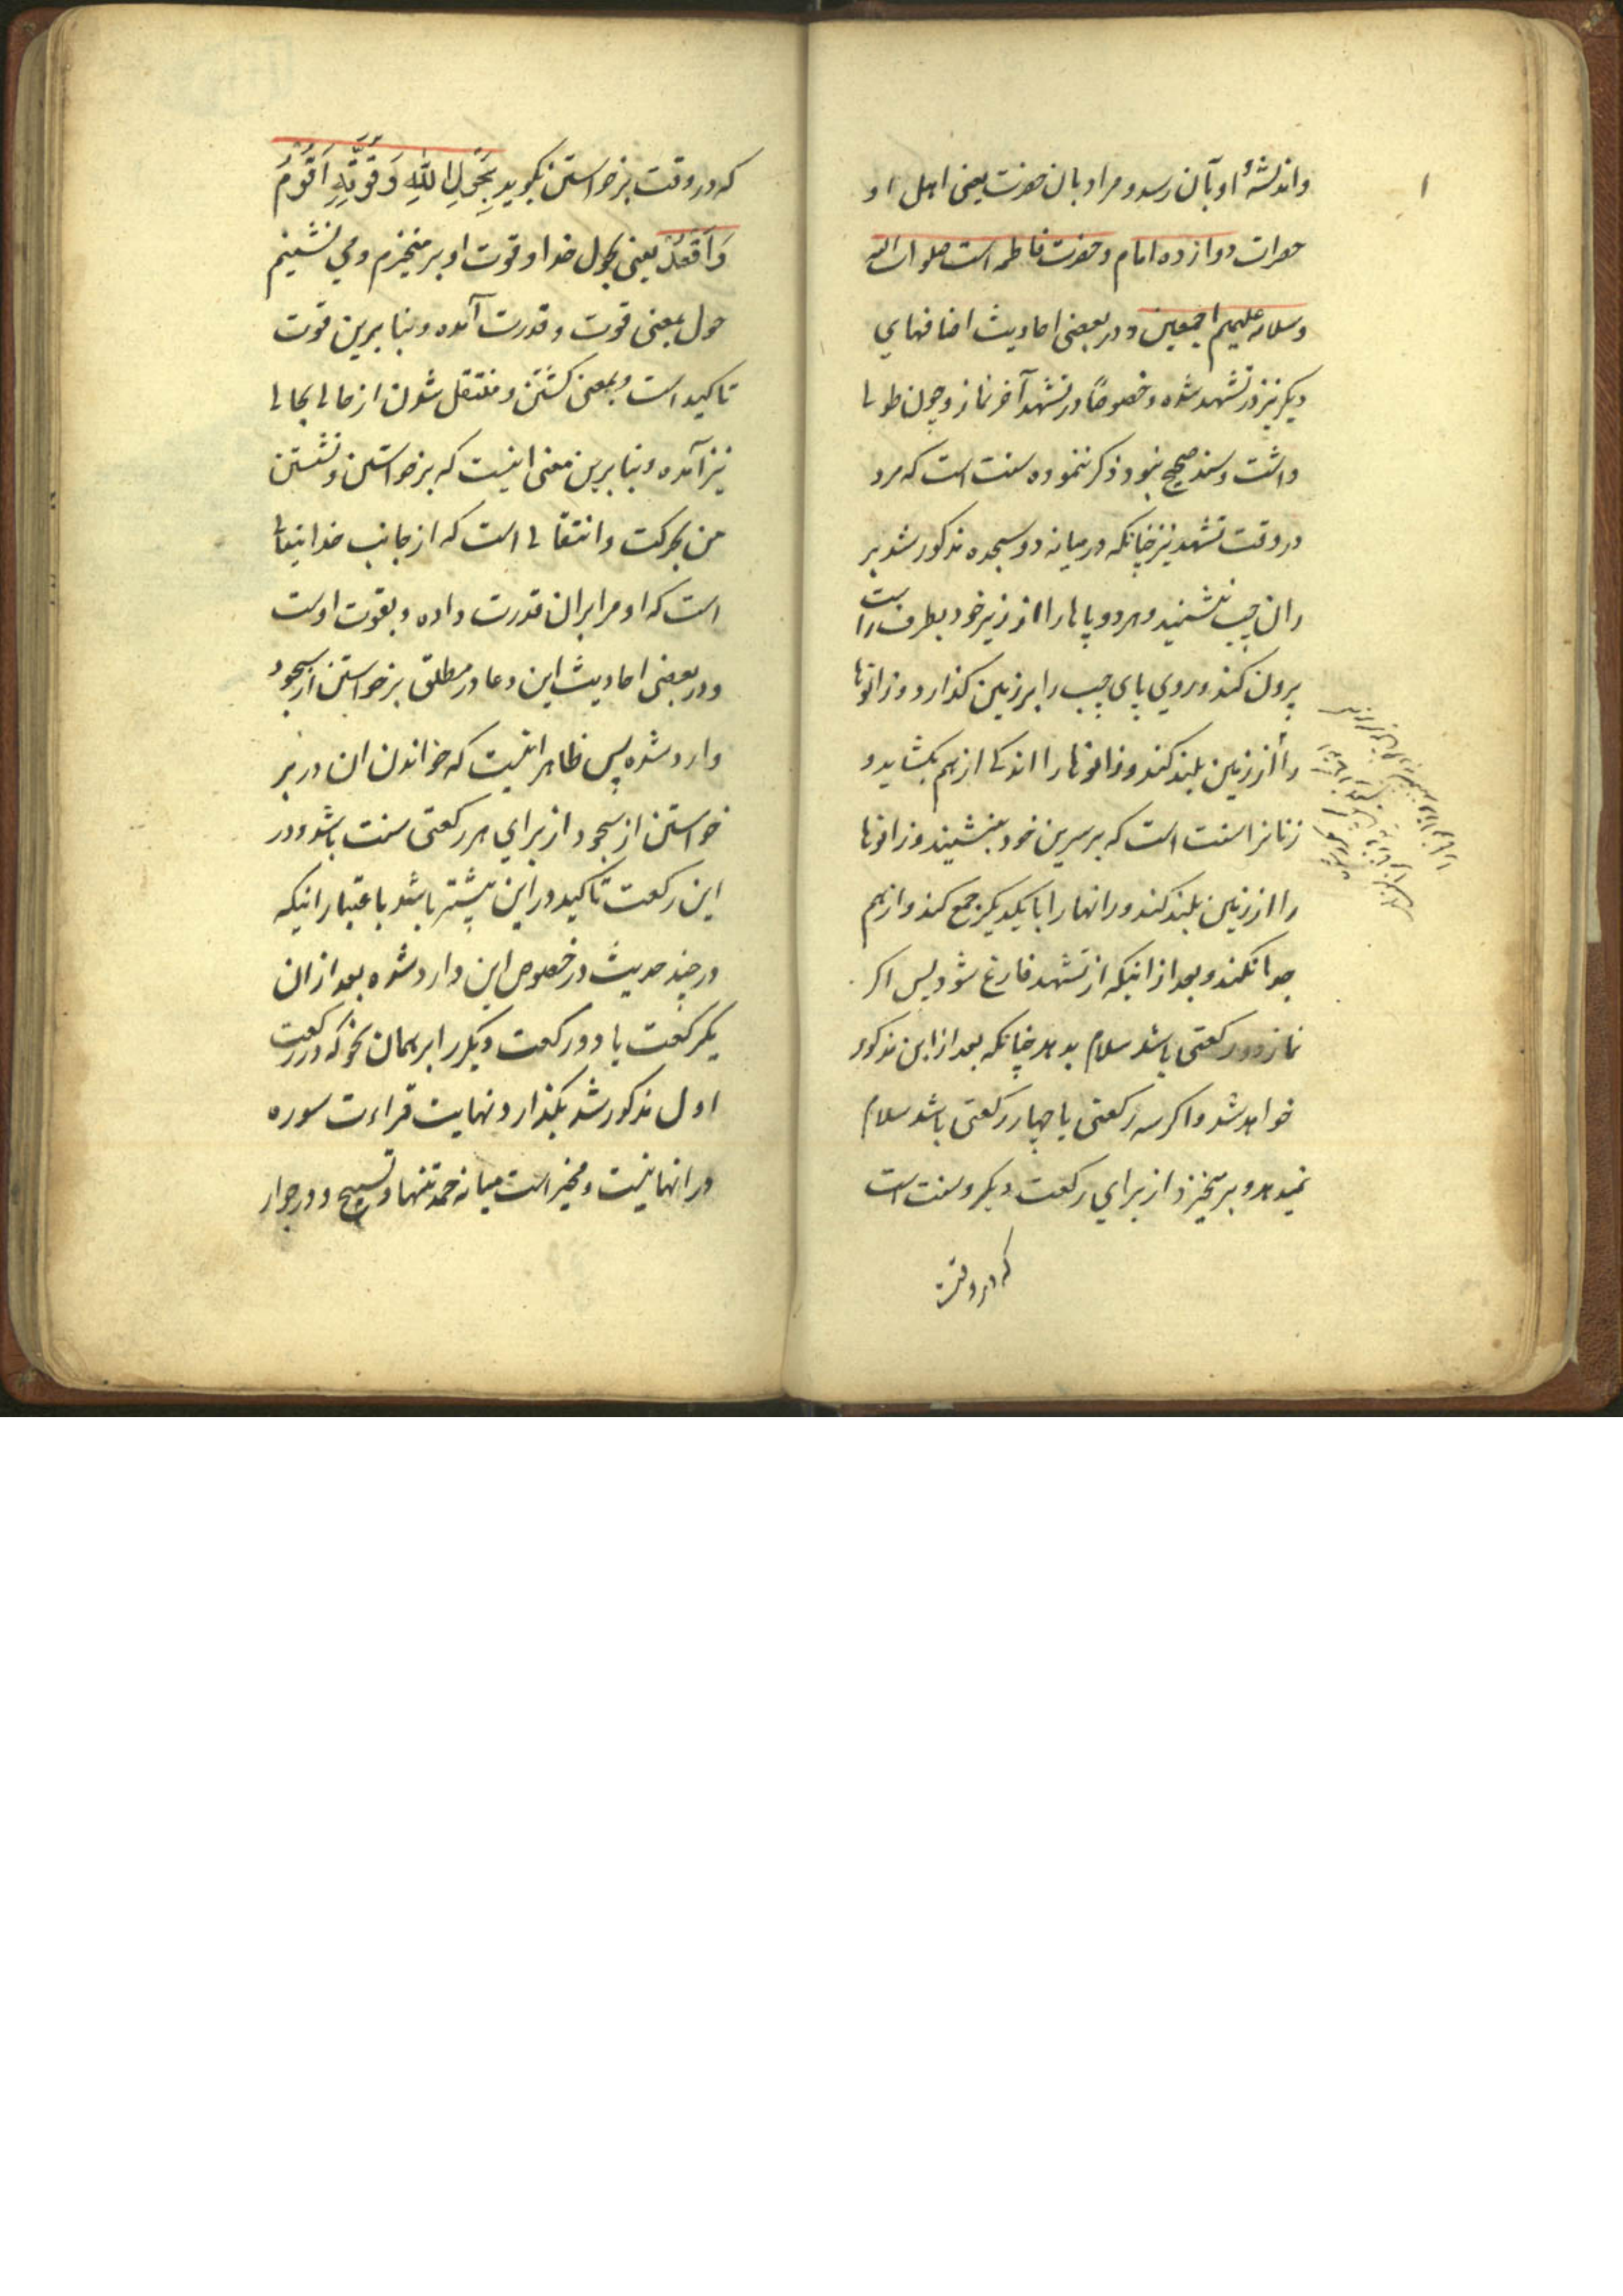 واندیشهٔ او بآن رسد و مراد بال حضرت یعنی اهل او
حضرات دوازده امام و حضرت فاطمه است صلوات الله
وسلامه علیهم اجمعین و در بعضی احادیث اضافهای
دیکر نیز در تشهد شده و خصوصًا در تشهد آخر نماز و چون طولی
داشت و سند صحیح نبود ذکر ننموده سنت است که مرد
در وقت تشهد نیز چنانکه در میانه دو سجده مذکور شد بر
ران چپ بنشیند و هر دو پاها را از زیر خود بطرف راست
بیرون کند و روی پای چپ را بر زمین کذارد و زانوها
را از زمین بلند کند و زانوها را اندکی از هم بکشاید و
زنانرا سنت است که بر سرین خود بنشیند و زانوها
را از زمین بلند کند و رانها را با یکدیکر جمع کند و از هم
جدا نکند و بعد از اینکه از تشهد فارغ شود پس اکر
نماز دو رکعتی باشد سلام بدهد چنانکه بعد از این مذکور
خواهد شد و اکر سه رکعتی یا چهار رکعتی باشد سلام
نمیدهد و بر میخیزد از برای رکعت دیکر و سنت است
که در وقت
که در وقت برخواستن بکوید بِحَوْلِ اللّٰهِ وَ قُوَّتِهِ اَقُوْمُ
وَ اَقْعُدُ یعنی بحول خدا و قوت او بر میخیزم و می نشینم
حول بمعنی قوت و قدرت آمده و بنا برین قوت
تاکید است و بمعنی کشتن و منتقل شدن از حالی بحالی
نیز آمده و بنا برین معنی اینست که برخواستن و نشستن
من بحرکت و انتقالی است که از جانب خدایتعالی
است که او مرا بر آن قدرت داده و بقوت اوست
و در بعضی احادیث این دعا در مطلق برخواستن از سجود
وارد شده پس ظاهر اینست که خواندن ان در بر
خواستن از سجود از برای هر رکعتی سنت باشد و در
این رکعت تاکید در این بیشتر باشد باعتبار اینکه
در چند حدیث در خصوص این وارد شده بعد از ان
یکرکعت یا دو رکعت دیکر را بر همان نحو که در رکعت
اول مذکور شد بکذارد نهایت قراءت سوره
در انها نیست و مخیر است میانه حمد تنها و تسبیح و در جواز